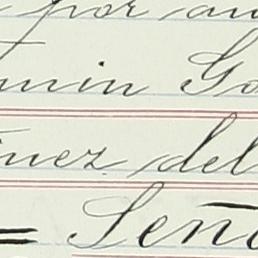 por an
min Go
nez del
= Seño